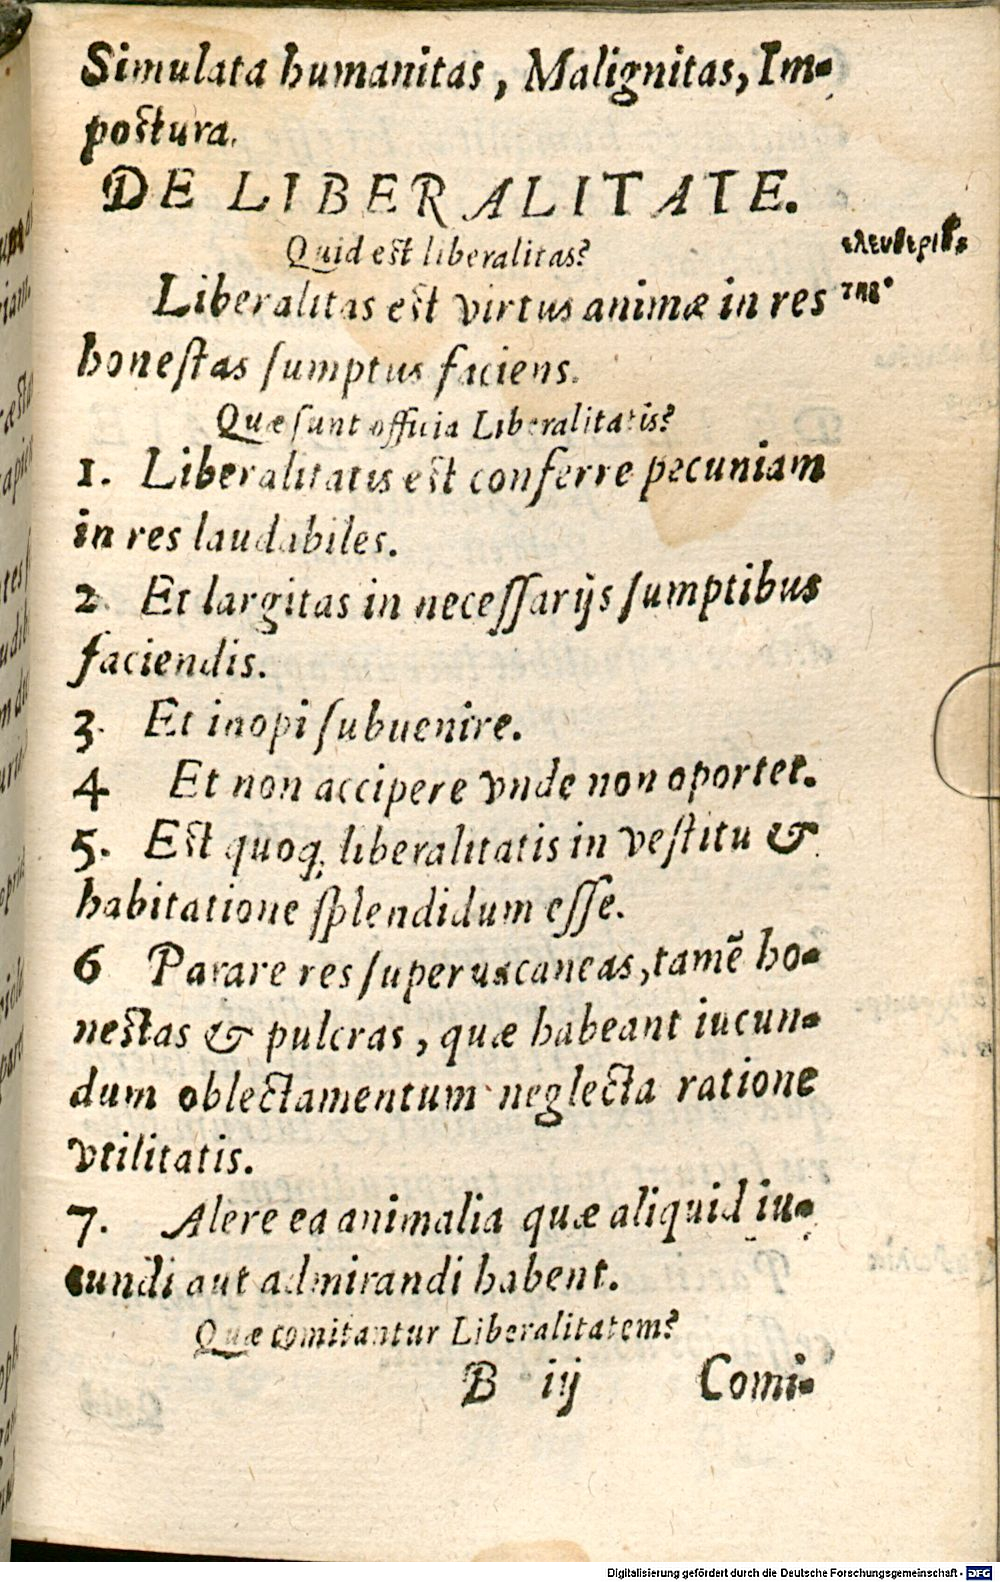 Simulata humanitas, Malignitas, Im-
postura.
DE LIBERALITATE.
Quid est liberalitas?
Liberalitas est virtus animæ in res
honeſtas ſumptus faciens.
Quæ ſunt officia Liberalitatis?
1. Liberalitatis est conferre pecuniam
in res laudabiles.
2. Et largitas in neceſſarijs ſumptibus
faciendis.
3. Et inopi ſubuenire.
4 Et non accipere vnde non oportet.
5. Est quoq; liberalitatis in veſtitu &
habitatione ſplendidum eſſe.
6 Parare res ſuperuacaneas, tamẽ ho-
nestas & pulcras, quæ habeant iucun-
dum oblectamentum neglecta ratione
vtilitatis.
7. Alere ea animalia quæ aliquid iu-
cundi aut admirandi habent.
Quæ comitantur Liberalitatem?
B iij Comi-